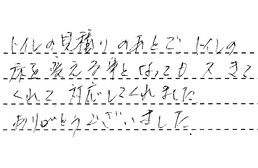 トイレの見積りのあとで トイレの
床を変える事となっても 又きて
くれて 対応してくれました
ありがとうございました。